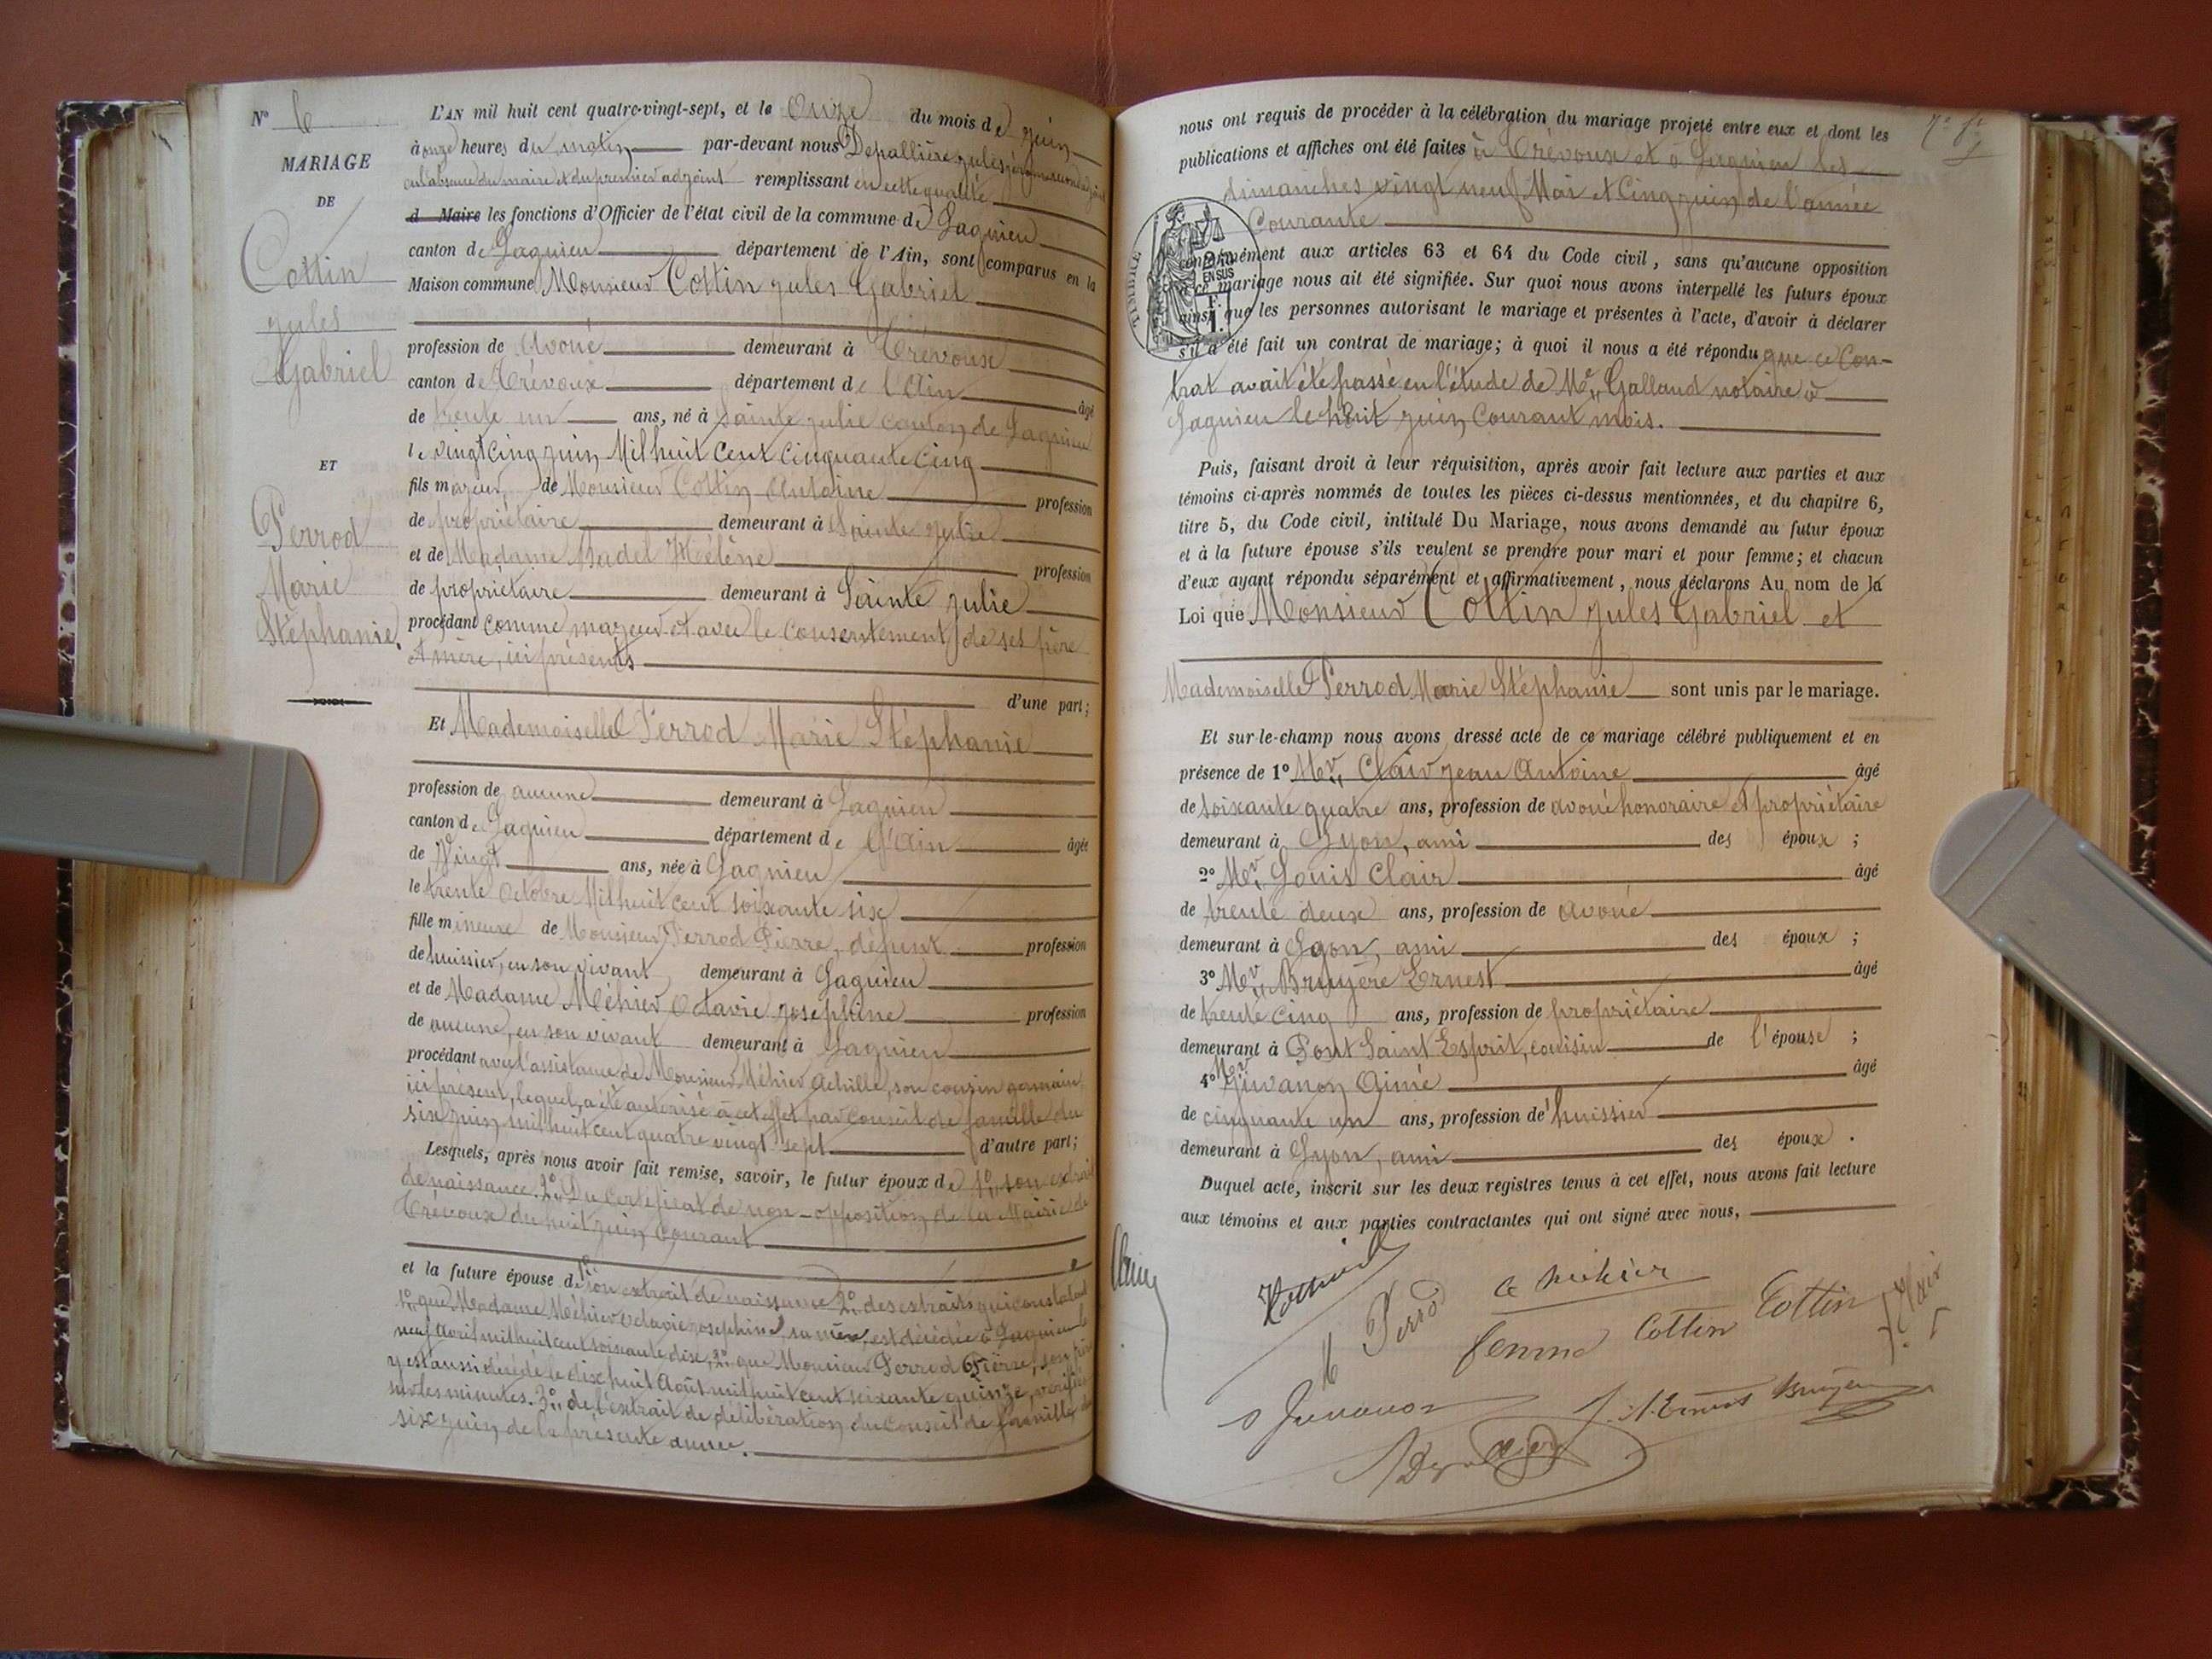 N° 6
MARIAGE
DE
Cottin
Jules
Gabriel
ET
Perrod
Marie
Stéphanie.
L'AN mil huit cent quatre-vingt-sept, et le Onze du mois de juin
à onze heures du matin par-devant nous Depallière Jules
en l'absence du maire et du premier adjoint remplissant en cette qualité
d Maire les fonctions d'Officier de l'état civil de la commune de Lagnieu
canton de Lagnieu département de l'Ain, sont comparus en la
Maison commune Monsieur Cottin Jules Gabriel
profession de Avoué demeurant à Trévoux
canton de Trévoux département de l'Ain âgé
de trente un ans, né à Sainte Julie canton de Lagnieu
le vingt cinq juin Mil huit cent cinquante cinq
fils majeur de Monsieur Cottin Antoine profession
de propriétaire demeurant à Sainte Julie
et de Madame Badel Hélène profession
de propriétaire demeurant à Sainte Julie
procédant comme majeur et avec le consentement de ses père
et mère, ici présents
d'une part;
Et Mademoiselle Perrod Marie Stéphanie
profession de aucune demeurant à Lagnieu
canton de Lagnieu département de l'Ain âgée
de Vingt ans, née à Lagnieu
le trente Octobre Mil huit cent soixante six
fille mineure de Monsieur Perrod Pierre, défunt profession
de huissier, en son vivant demeurant à Lagnieu
et de Madame Méhier Octavie Joséphine profession
de aucune, en son vivant demeurant à Lagnieu
procédant avec l'assistance de Monsieur Méhier Achille, son cousin germain,
ici présent, lequel a été autorisé à cet effet par conseil de famille du
six juin, mil huit cent quatre vingt sept d'autre part;
Lesquels, après nous avoir fait remise, savoir, le futur époux de 1° son extrait
de naissance. 2° Du Certificat de non-opposition de la Mairie de
Trévoux du huit juin Courant
et la future épouse de 1° son extrait de naissance 2° des extraits qui constatent
1° que Madame Méhier Octavie Joséphine, sa mère, est décédée à Lagnieu le
neuf Avril mil huit cent soixante dix, 2° que Monsieur Perrod Pierre, son père
y est aussi décédé le dix huit Août mil huit cent soixante quinze, vérifiés
sur les minutes. 3° de l'extrait de délibération du Conseil de famille du
six juin de la présente année.
nous ont requis de procéder à la célébration du mariage projeté entre eux et dont les
publications et affiches ont été faites à Trévoux et à Lagnieu les
dimanches vingt neuf Mai et Cinq juin de l'année
Courante
TIMBRE
EN SUS
conformément aux articles 63 et 64 du Code civil, sans qu'aucune opposition
à ce mariage nous ait été signifiée. Sur quoi nous avons interpellé les futurs époux
ainsi que les personnes autorisant le mariage et présentes à l'acte, d'avoir à déclarer
s'il a été fait un contrat de mariage; à quoi il nous a été répondu que ce Con-
trat avait été passé en l'étude de Mr Galland notaire à
Lagnieu le huit juin Courant mois.
Puis, faisant droit à leur réquisition, après avoir fait lecture aux parties et aux
témoins ci-après nommés de toutes les pièces ci-dessus mentionnées, et du chapitre 6,
titre 5, du Code civil, intitulé Du Mariage, nous avons demandé au futur époux
et à la future épouse s'ils veulent se prendre pour mari et pour femme; et chacun
d'eux ayant répondu séparément et affirmativement, nous déclarons Au nom de la
Loi que Monsieur Cottin Jules Gabriel et
Mademoiselle Perrod Marie Stéphanie sont unis par le mariage.
Et sur-le-champ nous avons dressé acte de ce mariage célébré publiquement et en
présence de 1° Mr Clair Jean Antoine âgé
de soixante quatre ans, profession de avoué honoraire et propriétaire
demeurant à Lyon, ami des époux ;
2° Mr Louis Clair âgé
de trente deux ans, profession de avoué
demeurant à Lyon, ami des époux ;
3° Mr Bruyère Ernest âgé
de trente cinq ans, profession de propriétaire
demeurant à Pont Saint Esprit, cousin de l'épouse ;
4° Mr Juvanon Aimé âgé
de cinquante un ans, profession de huissier
demeurant à Lyon, ami des époux .
Duquel acte, inscrit sur les deux registres tenus à cet effet, nous avons fait lecture
aux témoins et aux parties contractantes qui ont signé avec nous,
M Perrod
a méhier
femme Cottin
Cottin
Clair
Juvanon